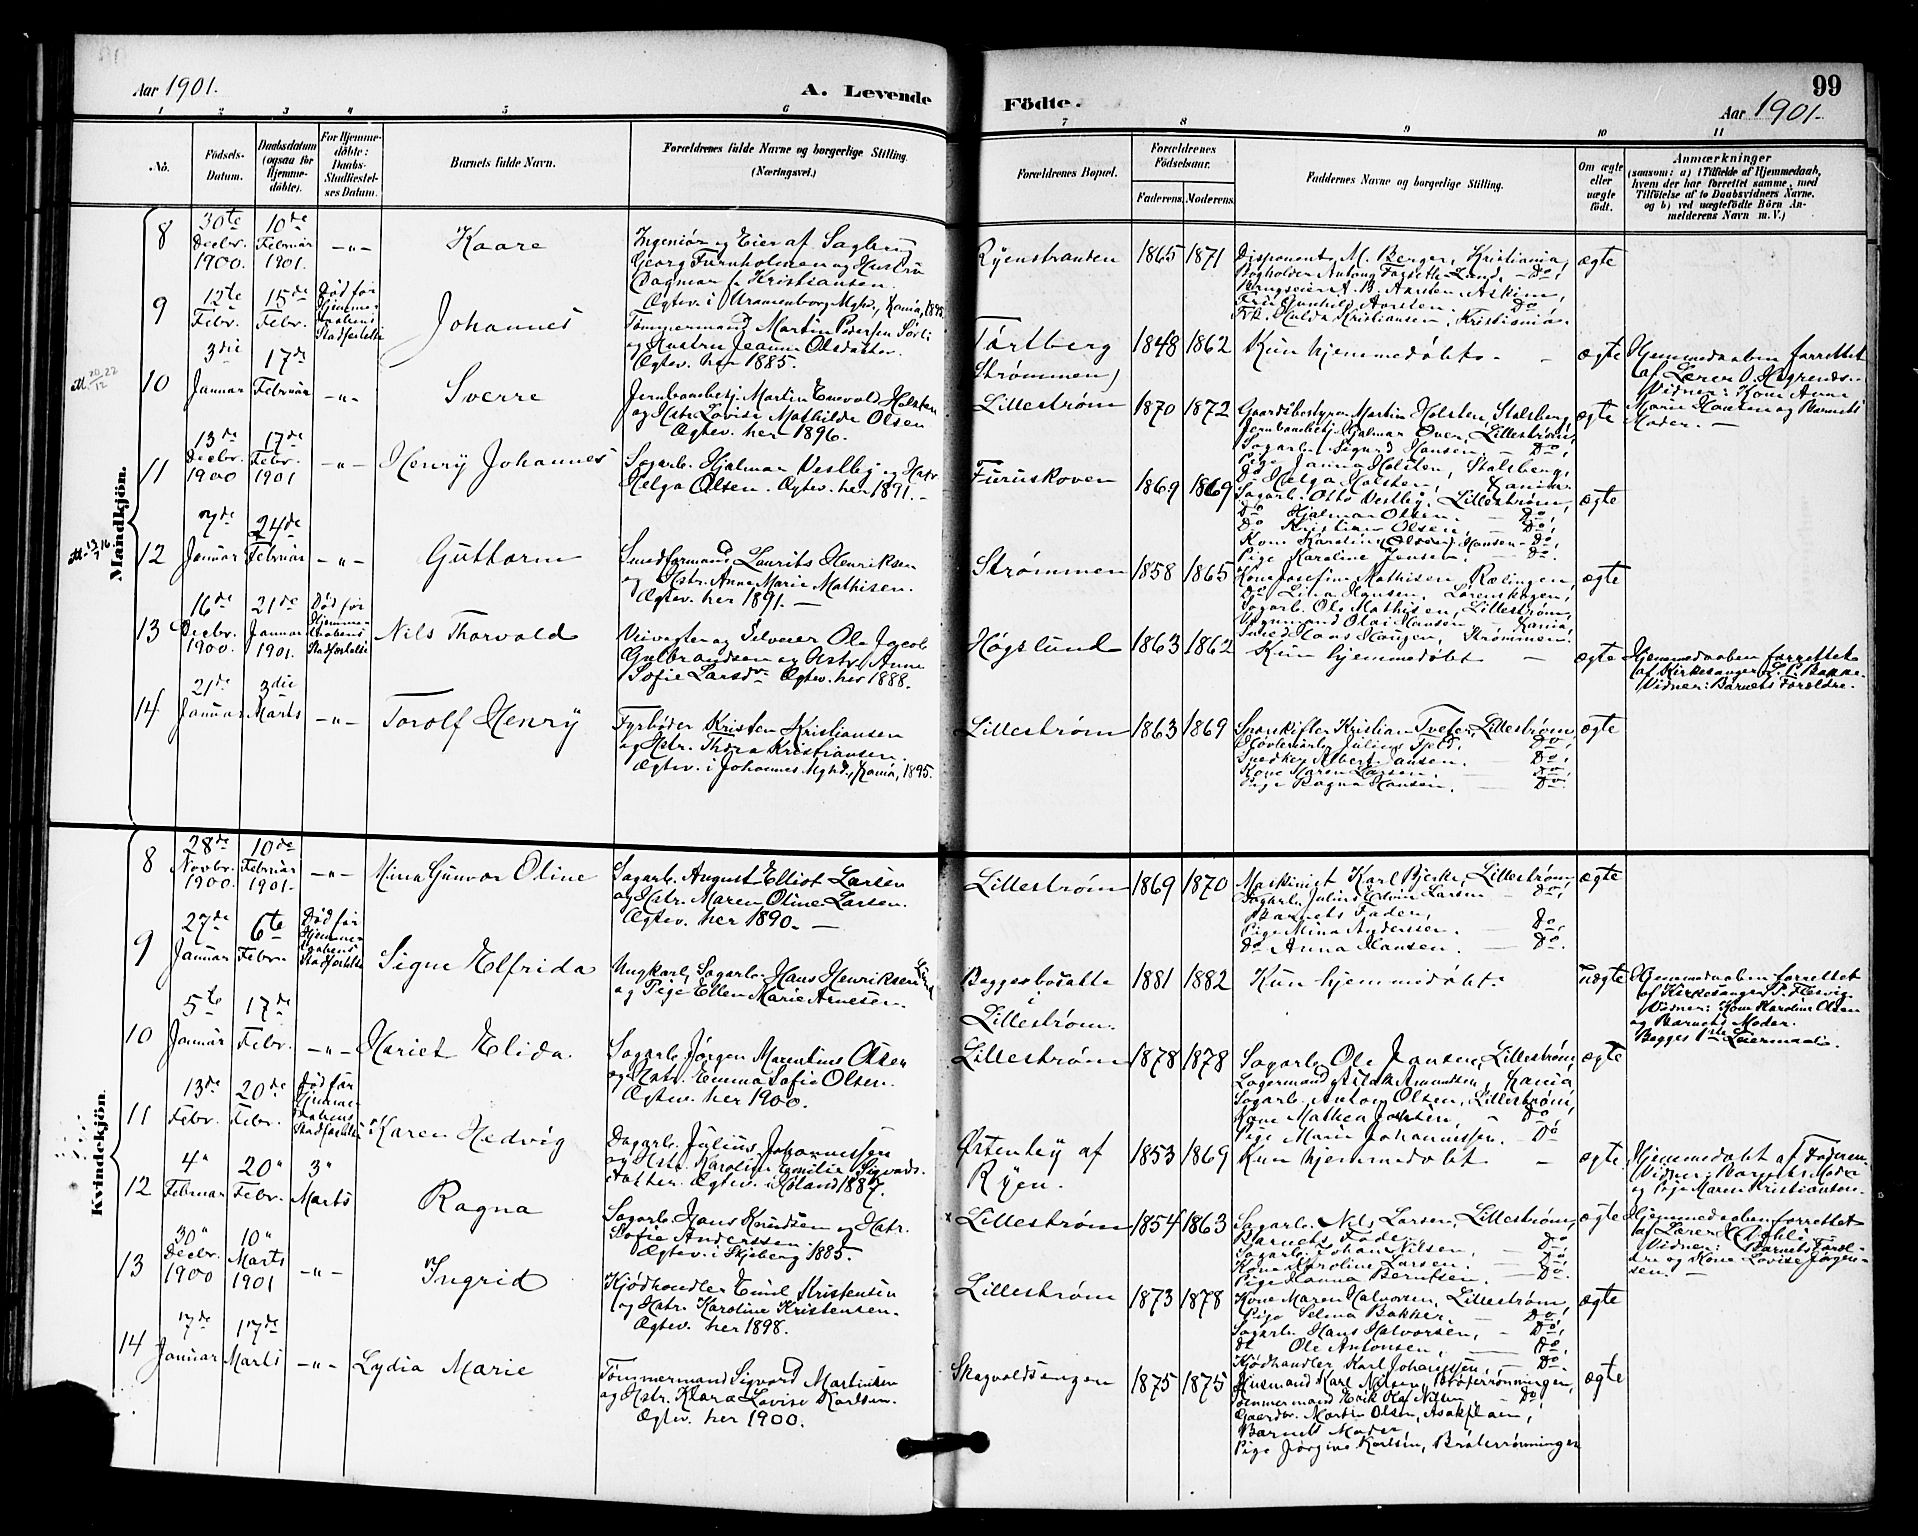 Aar 1901.
A. Levende
Födte.
99
Aar 1901.
1 2 3 4 5 6 7 8 9 10 11
No.
Födsels-
Datum.
Daabsdatum
(ogsaa for
Hjemme-
döbte).
For Hjemme-
döbte:
Daabs-
Stadfæstel-
ses Datum.
Barnets fulde Navn.
Forældrenes fulde Navne og borgerlige Stilling.
(Næringsvei.)
Forældrenes Bopæl.
Forældrenes
Födselsaar.
Faderens. Moderens.
Faddernes Navne og borgerlige Stilling.
Om ægte
eller
uægte
födt.
Anmærkninger
(saasom: a) i Tilfælde af Hjemmedaab,
hvem der har forrettet samme, med
Tilföielse af to Daabsvidners Navne.
og b) ved uægtefödte Börn An-
melderens Navn m. V.)
Mandkjön.
8
30te
Decbr.
1900.
10de
Februar
1901.
—"—
Kaare
Ingeniør og Eier af Sagbrug
Georg Furuholmen og Hustru
Dagmar f. Kristiansen.
Ægtev. i Uranienborg Mghd.,
Ryenstranden
1865 1871
Disponent M. Berger, Kristiania,
Bogholder Do,
Brugseier A. B. Aarsten, Askim,
Fru Gunhild Aarsten. Do
Frk. Hulda Kristiansen, Kristiania
ægte
9
12te
Febr.
15de
Febr.
Død før
Hjemme-
daabens
Stadfæstelse
Johannes
Tømmermand Martin Pedersen
og Hustru Jeanne Olsdatter.
Ægtev. her 1885.
Tærtberg
Strømmen
1848 1862
Kun hjemmedøbt. —
ægte
Hjemmedaaben forrettet
af Lærer O.
Vidner: Kone Anne
Marie Hansen og Barnets
Moder. —
10
3die
Januar
17de
Februar
—"—
Sverre
Jernbanebetj. Martin Enevold Holsten
og Hstr. Lovise Mathilde Olsen
Ægtev. her 1896.
Lillestrøm
1870 1872
Gaardsbestyrer Martin Holsten, Stalsberg,
Jernbanebetj. Hjalmar Oven, Lillestrøm,
Sagarb. Sigurd Hansen. — Do,
Pige Janna Holsten, Stalsberg,
Do Helga Holsten,
ægte
11
13de
Decbr.
1900
17de
Febr.
1901
—"—
Henry Johannes
Sagarb. Hjalmar Vestby og Hstr.
Helga Olsen. Ægtev. her 1891. —
Furuskoven
1869 1869
Sagarb. Otto Vestby, Lillestrøm,
Do Hjalmar Olsen. — Do,
Do Kristian Olsen, — Do,
Kone Karoline Hansen — Do,
Pige Karoline Jensen. — Do.
ægte
12
7de
Januar
24de
Februar
—"—
Guttorm
Smedformand Laurits Henriksen
og Hstr. Anne Marie Mathisen.
Ægtev. her 1891. —
Strømmen
1858 1865
Kone Josefine Mathisen, Rælingen,
Do Lina Hansen, Lørenskogen,
Sagarb. Ole Mathisen, Lillestrøm,
Olai Hansen —
Smed Hans Haugen, Strømmen.
ægte
13
16de
Decbr.
1900
21de
Januar
1901
Død før
Hjemme-
daabens
Stadfæstelse
Nils Thorvald
Veivogter og Selveier Ole Jacob
Gulbrandsen og Hstr. Anne
Sofie Larsdr. Ægtev. her 1888.
Høgslund
1863 1862
Kun hjemmedøbt —
ægte
Hjemmedaaben forrettet
af Kirkesanger L. P. Bakke.
Vidner: Barnets Forældre.
14
21de
Januar
3die
Marts
—"—
Torolf Henry
Fyrbøder Kristen Kristiansen
og Hstr. Thora Kristiansen.
Ægtev. i Johannes Mghd., Kania, 1895.
Lillestrøm
1863 1869
Sporskifter Kristian Tveter, Lillestrøm,
Høvleriarb. Julius Fjeld. Do,
Snedker Albert Jansen. — Do,
Kone Maren Larsen. — Do,
Pige Ragna Hansen. — Do.
ægte
Kvindekjön.
8
28de
Novbr.
1900.
10de
Februar
1901.
—"—
Mina Gunvor Oline
Sagarb. August Elliot Larsen
og Hstr. Maren Oline Larsen.
Ægtev. her 1890. —
Lillestrøm
1869 1870
Maskinigt Karl Bjerke, Lillestrøm,
Sagarb. Julius Edvin Larsen — Do,
Barnets Fader,
Pige Mina Anderssen. — Do,
Do Anna Hansen. — Do.
ægte
9
27de
Januar
6te
Febr.
Død før
Hjemme-
daabens
Stadfæstelse
Signe Elfrida
Ungkarl, Sagarb. Hans Henriksen
og Pige Ellen Marie Arnesen.
Begges bosatte
i
Lillestrøm.
1881 1882
Kun hjemmedøbt.
uægte
Hjemmedaaben forrettet
af Kirkesanger P. Flesvig
Vidner: Kone Karoline Olsen
og Barnets Moder.
Begges 1ste Leiermaal.
10
5te
Januar
17de
Febr.
—"—
Hariet Elida
Sagarb. Jørgen Marentius Olsen
og Hstr. Emma Sofie Olsen.
Ægtev. her 1900.
Lillestrøm
1878 1878
Sagarb. Ole Jansen, Lillestrøm,
Lagermand Amundsen, Kania,
Sagarb. Anton Olsen, Lillestrøm,
Kone Mathea — Do,
Pige Marie Johannessen. — Do
ægte
11
13de
Febr.
20de
Febr.
Død før
Hjemme-
daabens
Stadfæstelse
Karen Hedvig
Dagarb. Julius Johannessen
og Hstr. Karoline Emilie Sigvards-
datter. Ægtev. i Høland 1887.
Østenby af
Ryen.
1853 1869
Kun hjemmedøbt —
ægte
Hjemmedøbt af Faderen.
Vidner: Barnets Moder
og Pige Maren Kristiansen.
12
4"
Februar
20"
Febr.
3"
Marts
Ragna
Sagarb. Hans Knudsen og Hstr.
Sofie Anderssen.
Ægtev. i Skjeberg 1885.
Lillestrøm
1854 1863
Sagarb. Nils Larsen, Lillestrøm,
Barnets Fader, Do
Sagarb. Johan Nilsen, — Do,
Kone Karoline Larsen. — Do,
Pige Hanna Berntsen. — Do.
ægte
Hjemmedaaben forrettet
af Lærer H. Dahl.
Vidner: Barnets Foræl-
dre og Kone Lovise Jørgen-
sen. —
13
30"
Decbr.
1900
10"
Marts
1901
—"—
Ingrid
Kjødhandler Emil Kristensen
og Hstr. Karoline Kristensen.
Ægtev. her 1898.
Lillestrøm
1873 1878
Kone Maren Halvorsen, Lillestrøm,
Pige Selma Bakker. — Do,
Sagarb. Hans Halvorsen, — Do,
do Ole Antonsen, — Do,
Kjødhandler Karl Johanssen, — Do
ægte
14
17de
Januar
17de
Marts
—"—
Lydia Marie
Tømmermand Sigvard Martinsen
og Hstr. Klara Lovise Karlsen.
Ægtev. her 1900.
Skogvoldsengen
1875 1875
Husmand Karl Nilsen, Bråterrønningen,
Tømmermand Erik Olaf Nilsen, — Do,
Gaardbr. Martin Olsen,
Barnets Moder
Pige Jørgine Karlsen, Bråterrønningen
ægte